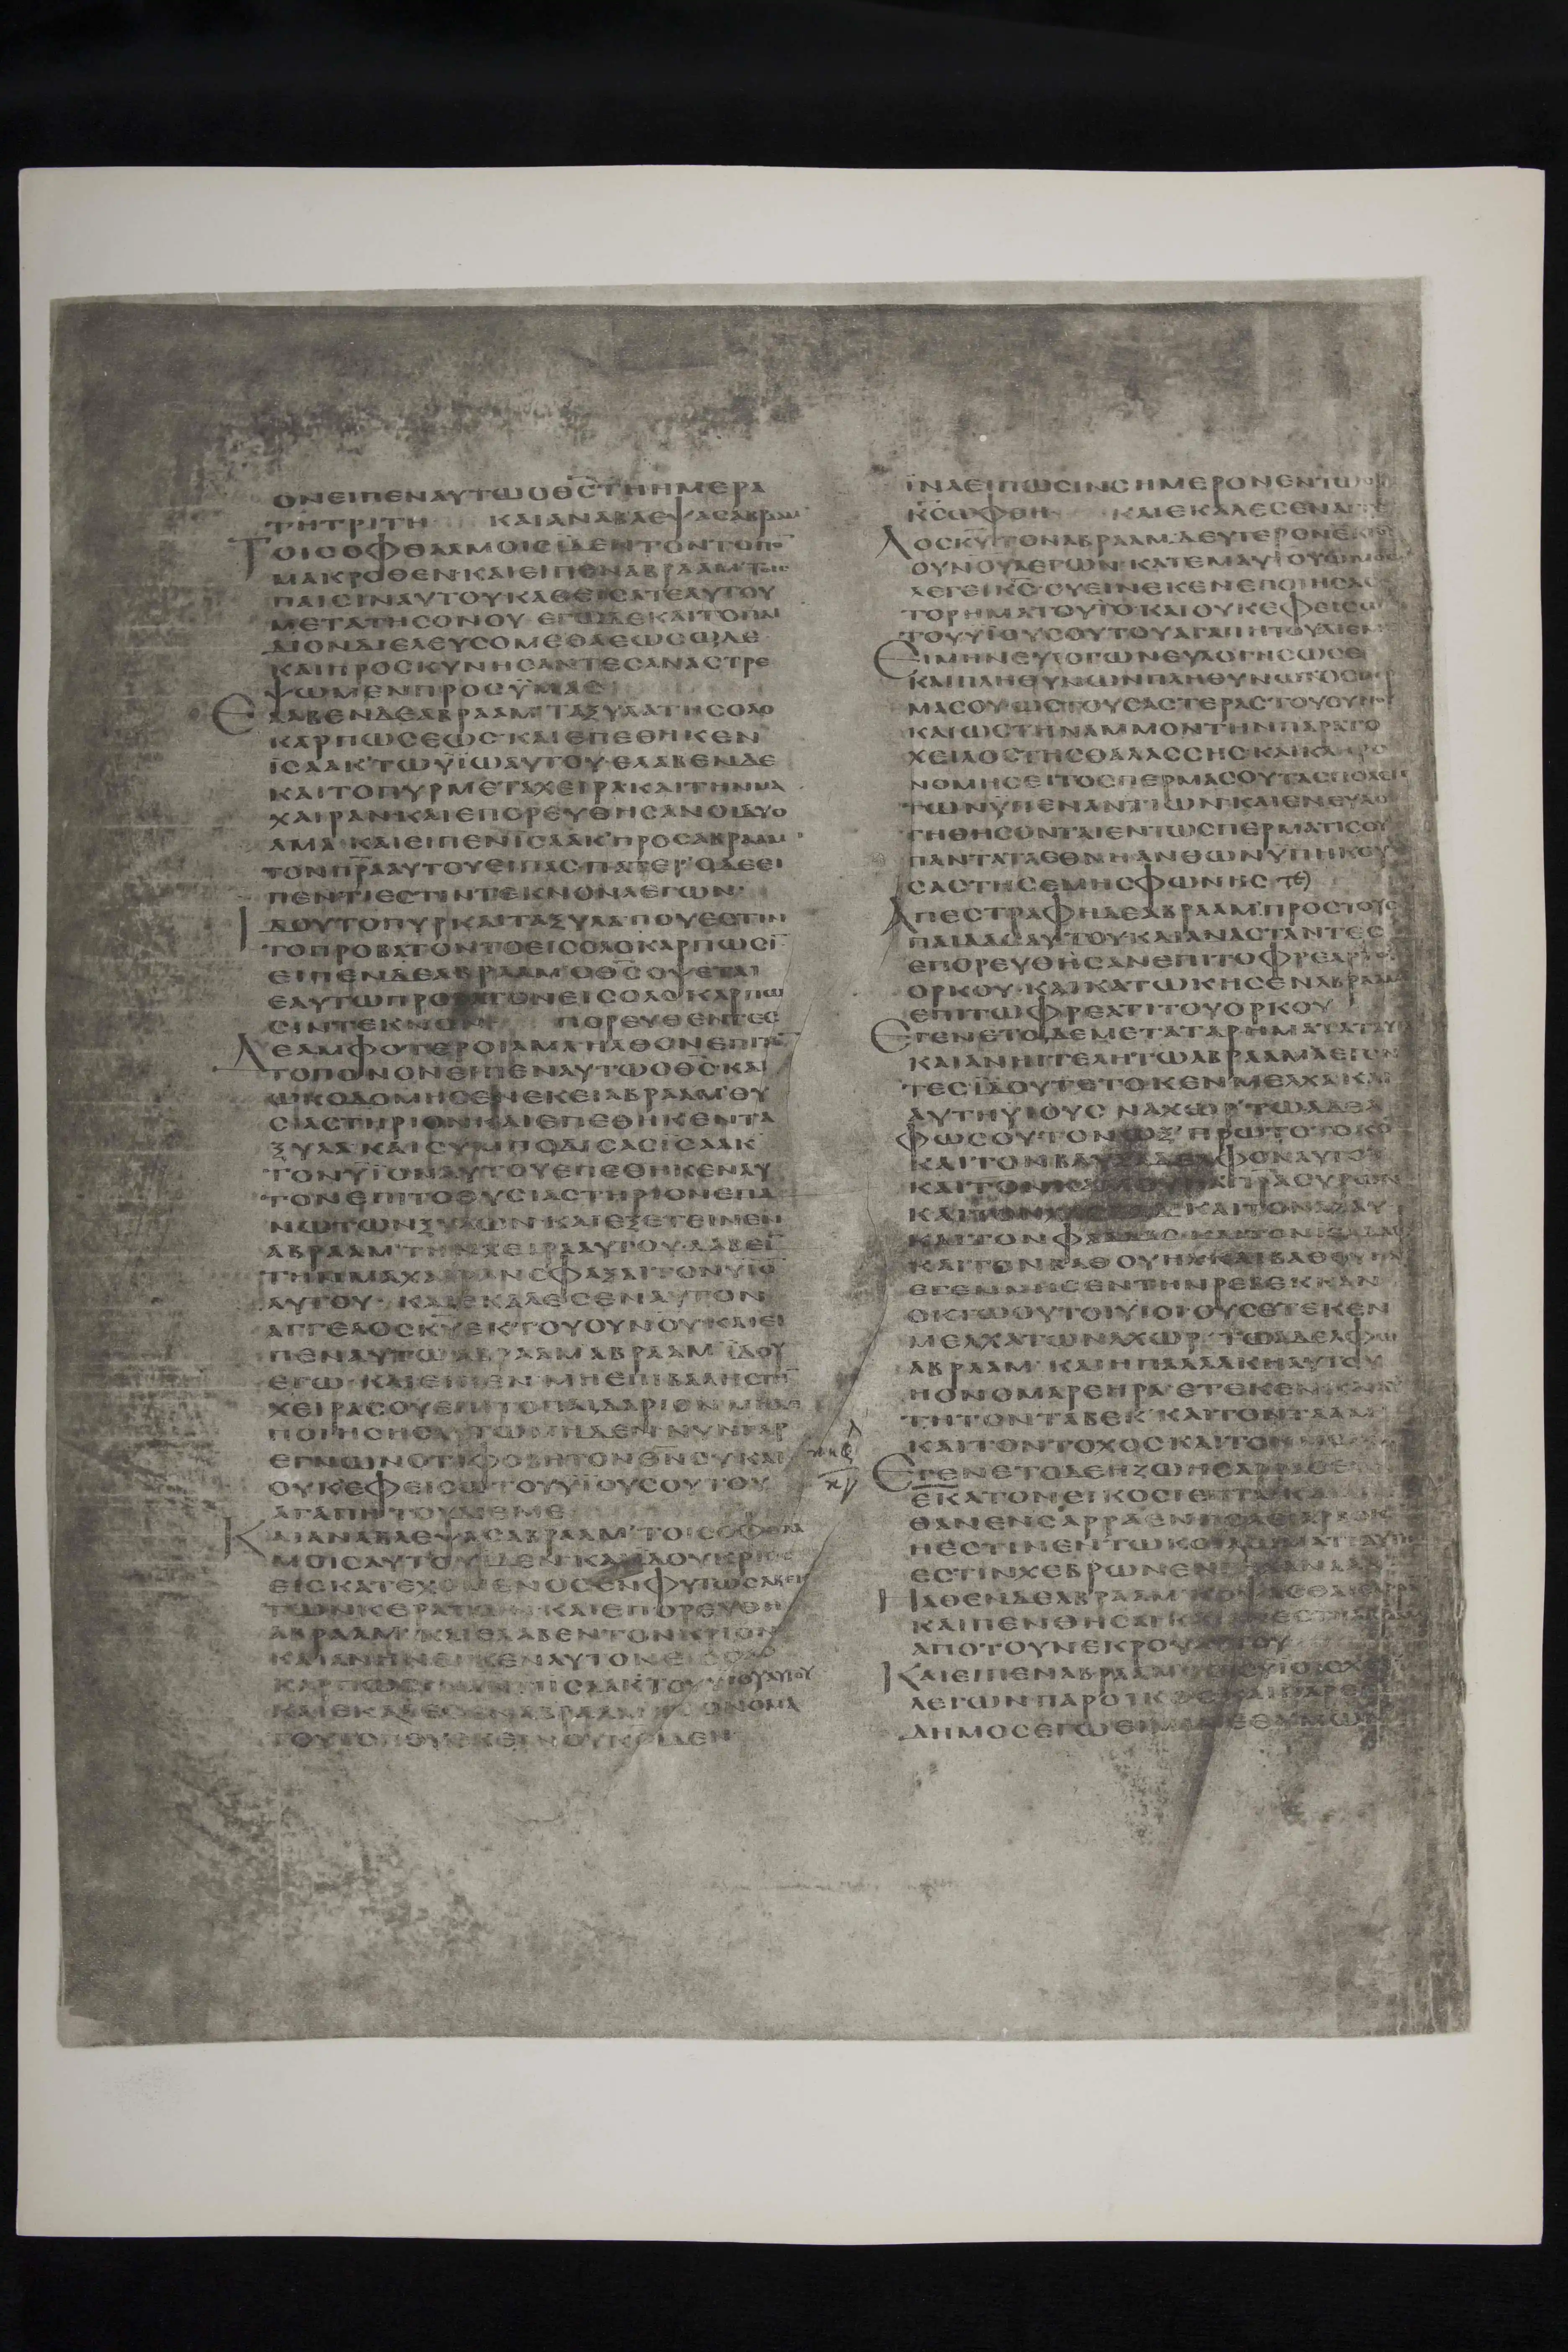 ΟΝΕΙΠΕΝΑΥΤΩΟΘ̅Σ̅ΤΗΗΜΕΡΑ
ΤΗΤΡΙΤΗ ΚΑΙΑΝΑΒΛΕΨΑΣΑΒΡΑΑΜ
ΤΟΙΣΟΦΘΑΛΜΟΙΣΪΔΕΝΤΟΝΤΟΠΟ̅
ΜΑΚΡΟΘΕΝ·ΚΑΙΕΙΠΕΝΑΒΡΑΑΜΤΟΙΣ
ΠΑΙΣΙΝΑΥΤΟΥΚΑΘΕΙΣΑΤΕΑΥΤΟΥ
ΜΕΤΑΤΗΣΟΝΟΥ·ΕΓΩΔΕΚΑΙΤΟΠΑΙ
ΔΙΟΝΔΙΕΛΕΥΣΟΜΕΘΑΕΩΣΩΔΕ
ΚΑΙΠΡΟΣΚΥΝΗΣΑΝΤΕΣΑΝΑΣΤΡΕ
ΨΩΜΕΝΠΡΟΣΫΜΑΣ
ΕΛΑΒΕΝΔΕΑΒΡΑΑΜ'ΤΑΞΥΛΑΤΗΣΟΛΟ
ΚΑΡΠΩΣΕΩΣ·ΚΑΙΕΠΕΘΗΚΕΝ
ΪΣΑΑΚ'ΤΩΥΪΩΑΥΤΟΥ·ΕΛΑΒΕΝΔΕ
ΚΑΙΤΟΠΥΡΜΕΤΑΧΕΙΡΑΚΑΙΤΗΝΜΑ
ΧΑΙΡΑΝ·ΚΑΙΕΠΟΡΕΥΘΗΣΑΝΟΙΔΥΟ
ΑΜΑ·ΚΑΙΕΙΠΕΝΪΣΑΑΚ'ΠΡΟΣΑΒΡΑΑΜ
ΤΟΝΠ̅Ρ̅Α̅ΑΥΤΟΥΕΙΠΑΣ·ΠΑΤΕΡ·ΟΔΕΕΙ
ΠΕΝΤΙΕΣΤΙΝΤΕΚΝΟΝΛΕΓΩΝ·
ΙΔΟΥΤΟΠΥΡΚΑΙΤΑΞΥΛΑ·ΠΟΥΕΣΤΙΝ
ΤΟΠΡΟΒΑΤΟΝΤΟΕΙΣΟΛΟΚΑΡΠΩΣΙ̅
ΕΙΠΕΝΔΕΑΒΡΑΑΜ'ΟΘ̅Σ̅ΟΨΕΤΑΙ
ΕΑΥΤΩΠΡΟΒΑΤΟΝΕΙΣΟΛΟΚΑΡΠΩ
ΣΙΝΤΕΚΝΟΝ ΠΟΡΕΥΘΕΝΤΕΣ
ΔΕΑΜΦΟΤΕΡΟΙΑΜΑΗΛΘΟΝΕΠΙΤΟ̅
ΤΟΠΟΝΟΝΕΙΠΕΝΑΥΤΩΟΘ̅Σ̅ΚΑΙ
ΩΚΟΔΟΜΗΣΕΝΕΚΕΙΑΒΡΑΑΜ'ΘΥ
ΣΙΑΣΤΗΡΙΟΝΚΑΙΕΠΕΘΗΚΕΝΤΑ
ΞΥΛΑ·ΚΑΙΣΥΜΠΟΔΙΣΑΣΪΣΑΑΚ
ΤΟΝΥΪΟΝΑΥΤΟΥΕΠΕΘΗΚΕΝΑΥ
ΤΟΝΕΠΙΤΟΘΥΣΙΑΣΤΗΡΙΟΝΕΠΑ
ΝΩΤΩΝΞΥΛΩΝ·ΚΑΙΕΞΕΤΕΙΝΕΝ
ΑΒΡΑΑΜ'ΤΗΝΧΕΙΡΑΑΥΤΟΥ·ΛΑΒΕΙ̅
ΤΗΝΜΑΧΑΙΡΑΝΣΦΑΞΑΙΤΟΝΥΪΟ̅
ΑΥΤΟΥ·ΚΑΙΕΚΑΛΕΣΕΝΑΥΤΟΝ
ΑΓΓΕΛΟΣΚ̅Υ̅ΕΚΤΟΥΟΥΝΟΥΚΑΙΕΙ
ΠΕΝΑΥΤΩΑΒΡΑΑΜΑΒΡΑΑΜ'ΪΔΟΥ
ΕΓΩ·ΚΑΙΕΙΠΕΝ·ΜΗΕΠΙΒΑΛΗΣΤΗ̅
ΧΕΙΡΑΣΟΥΕΠΙΤΟΠΑΙΔΑΡΙΟΝ
ΠΟΙΗΣΗΣΑΥΤΩΜΗΔΕΝ·ΝΥΝΓΑΡ
ΕΓΝΩΝΟΤΙΦΟΒΗΤΟΝΘ̅Ν̅ΣΥΚΑΙ
ΟΥΚΕΦΕΙΣΩΤΟΥΥΪΟΥΣΟΥΤΟΥ
ΑΓΑΠΗΤΟΥΔΙΕΜΕ
ΚΑΙΑΝΑΒΛΕΨΑΣΑΒΡΑΑΜ'ΤΟΙΣΟΦΘΑΛ
ΜΟΙΣΑΥΤΟΥΪΔΕΝ·ΚΑΙΪΔΟΥΚΡΙΟΣ
ΕΙΣΚΑΤΕΧΟΜΕΝΟΣΕΝΦΥΤΩΣΑΒΕΚ
ΤΩΝΚΕΡΑΤΩΝ·ΚΑΙΕΠΟΡΕΥΘΗ
ΑΒΡΑΑΜ'ΚΑΙΕΛΑΒΕΝΤΟΝΚΡΙΟΝ
ΚΑΙΑΝΗΝΕΓΚΕΝΑΥΤΟΝΕΙΣΟΛΟ
ΚΑΡΠΩΣΙΝΑΝΤΙΪΣΑΑΚΤΟΥΥΪΟΥΑΥΤΟΥ
ΚΑΙΕΚΑΛΕΣΕΝΑΒΡΑΑΜΤΟΟΝΟΜΑ
ΤΟΥΤΟΠΟΥΕΚΕΙΝΟΥΚ̅Σ̅ΪΔΕΝ
ΪΝΑΕΙΠΩΣΙΝΣΗΜΕΡΟΝΕΝΤΩΟΡΙ
Κ̅Σ̅ΩΦΘΗ ΚΑΙΕΚΑΛΕΣΕΝΑΓΓΕ
ΛΟΣΚ̅Υ̅ΤΟΝΑΒΡΑΑΜ'ΔΕΥΤΕΡΟΝΕΚΤΟΥ
ΟΥΝΟΥΛΕΓΩΝ·ΚΑΤΕΜΑΥΤΟΥΩΜΟΣΑ
ΛΕΓΕΙΚ̅Σ̅·ΟΥΕΙΝΕΚΕΝΕΠΟΙΗΣΑΣ
ΤΟΡΗΜΑΤΟΥΤΟΚΑΙΟΥΚΕΦΕΙΣΩ
ΤΟΥΥΪΟΥΣΟΥΤΟΥΑΓΑΠΗΤΟΥΔΙΕΜΕ
ΕΙΜΗΝΕΥΛΟΓΩΝΕΥΛΟΓΗΣΩΣΕ
ΚΑΙΠΛΗΘΥΝΩΝΠΛΗΘΥΝΩΤΟΣΠΕΡ
ΜΑΣΟΥ·ΩΣΤΟΥΣΑΣΤΕΡΑΣΤΟΥΟΥΝΟΥ
ΚΑΙΩΣΤΗΝΑΜΜΟΝΤΗΝΠΑΡΑΤΟ
ΧΕΙΛΟΣΤΗΣΘΑΛΑΣΣΗΣΚΑΙΚΛΗΡΟ
ΝΟΜΗΣΕΙΤΟΣΠΕΡΜΑΣΟΥΤΑΣΠΟΛΕΙΣ
ΤΩΝΫΠΕΝΑΝΤΙΩΝ·ΚΑΙΕΝΕΥΛΟ
ΓΗΘΗΣΟΝΤΑΙΕΝΤΩΣΠΕΡΜΑΤΙΣΟΥ
ΠΑΝΤΑΤΑΕΘΝΗΑΝΘΩΝΫΠΗΚΟΥ
ΣΑΣΤΗΣΕΜΗΣΦΩΝΗΣ
ΑΠΕΣΤΡΑΦΗΔΕΑΒΡΑΑΜ'ΠΡΟΣΤΟΥΣ
ΠΑΙΔΑΣΑΥΤΟΥΚΑΙΑΝΑΣΤΑΝΤΕΣ
ΕΠΟΡΕΥΘΗΣΑΝΕΠΙΤΟΦΡΕΑΡΤΟΥ
ΟΡΚΟΥ·ΚΑΙΚΑΤΩΚΗΣΕΝΑΒΡΑΑΜ
ΕΠΙΤΩΦΡΕΑΤΙΤΟΥΟΡΚΟΥ
ΕΓΕΝΕΤΟΔΕΜΕΤΑΤΑΡΗΜΑΤΑΤΑΥΤΑ
ΚΑΙΑΝΗΓΓΕΛΗΤΩΑΒΡΑΑΜΛΕΓΟΝ
ΤΕΣΪΔΟΥΤΕΤΟΚΕΝ'ΜΕΛΧΑΚΑΙ
ΑΥΤΗΥΙΟΥΣ ΝΑΧΩΡ'ΤΩΑΔΕΛ
ΦΩΣΟΥΤΟΝΩΞ'ΠΡΩΤΟΤΟΚΟ̅
ΚΑΙΤΟΝΒΑΥΞΑΔΕΛΦΟΝΑΥΤΟΥ
ΚΑΙΤΟΝΚΑΜΟΥΗΛΠ̅Ρ̅Α̅ΣΥΡΩΝ
ΚΑΙΤΟΝ ΚΑΙΤΟΝΑΖΑΥ
ΚΑΙΤΟΝΦΑΛΔΑΣ·ΚΑΙΤΟΝ
ΚΑΙΤΟΝΒΑΘΟΥΗΛ'ΚΑΙΒΑΘΟΥΗΛ
ΕΓΕΝΝΗΣΕΝΤΗΝΡΕΒΕΚΚΑΝ
ΟΚΤΩΟΥΤΟΙΥΙΟΙΟΥΣΕΤΕΚΕΝ
ΜΕΛΧΑΤΩΝΑΧΩΡ·ΤΩΑΔΕΛΦΩ
ΑΒΡΑΑΜ·ΚΑΙΗΠΑΛΛΑΚΗΑΥΤΟΥ
ΗΟΝΟΜΑΡΕΗΡΑ·ΕΤΕΚΕΝΚΑΙΑΥ
ΤΗΤΟΝΤΑΒΕΚ'ΚΑΙΤΟΝΤΑΑΜ
ΚΑΙΤΟΝΤΟΧΟΣΚΑΙΤΟΝ
ΕΓΕΝΕΤΟΔΕΗΖΩΗΣΑΡΡΑΣΕΤΗ
ΕΚΑΤΟΝΕΙΚΟΣΙΕΠΤΑΚΑΙ
ΘΑΝΕΝΣΑΡΡΑΕΝΠΟΛΕΙΑΡΒΟΚ
ΗΕΣΤΙΝΕΝΤΩΚΟΙΛΩΜΑΤΙΑΥΤΗ
ΕΣΤΙΝΧΕΒΡΩΝΕΝ ΧΑΝΑΑΝ
ΗΛΘΕΝΔΕΑΒΡΑΑΜ'ΚΟΨΑΣΘΑΙ
ΚΑΙΠΕΝΘΗΣΑΙ·ΚΑΙΑΝΕΣΤΗΑΒΡΑΑΜ
ΑΠΟΤΟΥΝΕΚΡΟΥΑΥΤΟΥ
ΚΑΙΕΙΠΕΝΑΒΡΑΑΜΤΟΙΣΥΪΟΙΣΧΕΤ
ΛΕΓΩΝΠΑΡΟΙΚΟΣΚΑΙΠΑΡΕΠΙ
ΔΗΜΟΣΕΓΩΕΙΜΙΜΕΘΥΜΩΝ